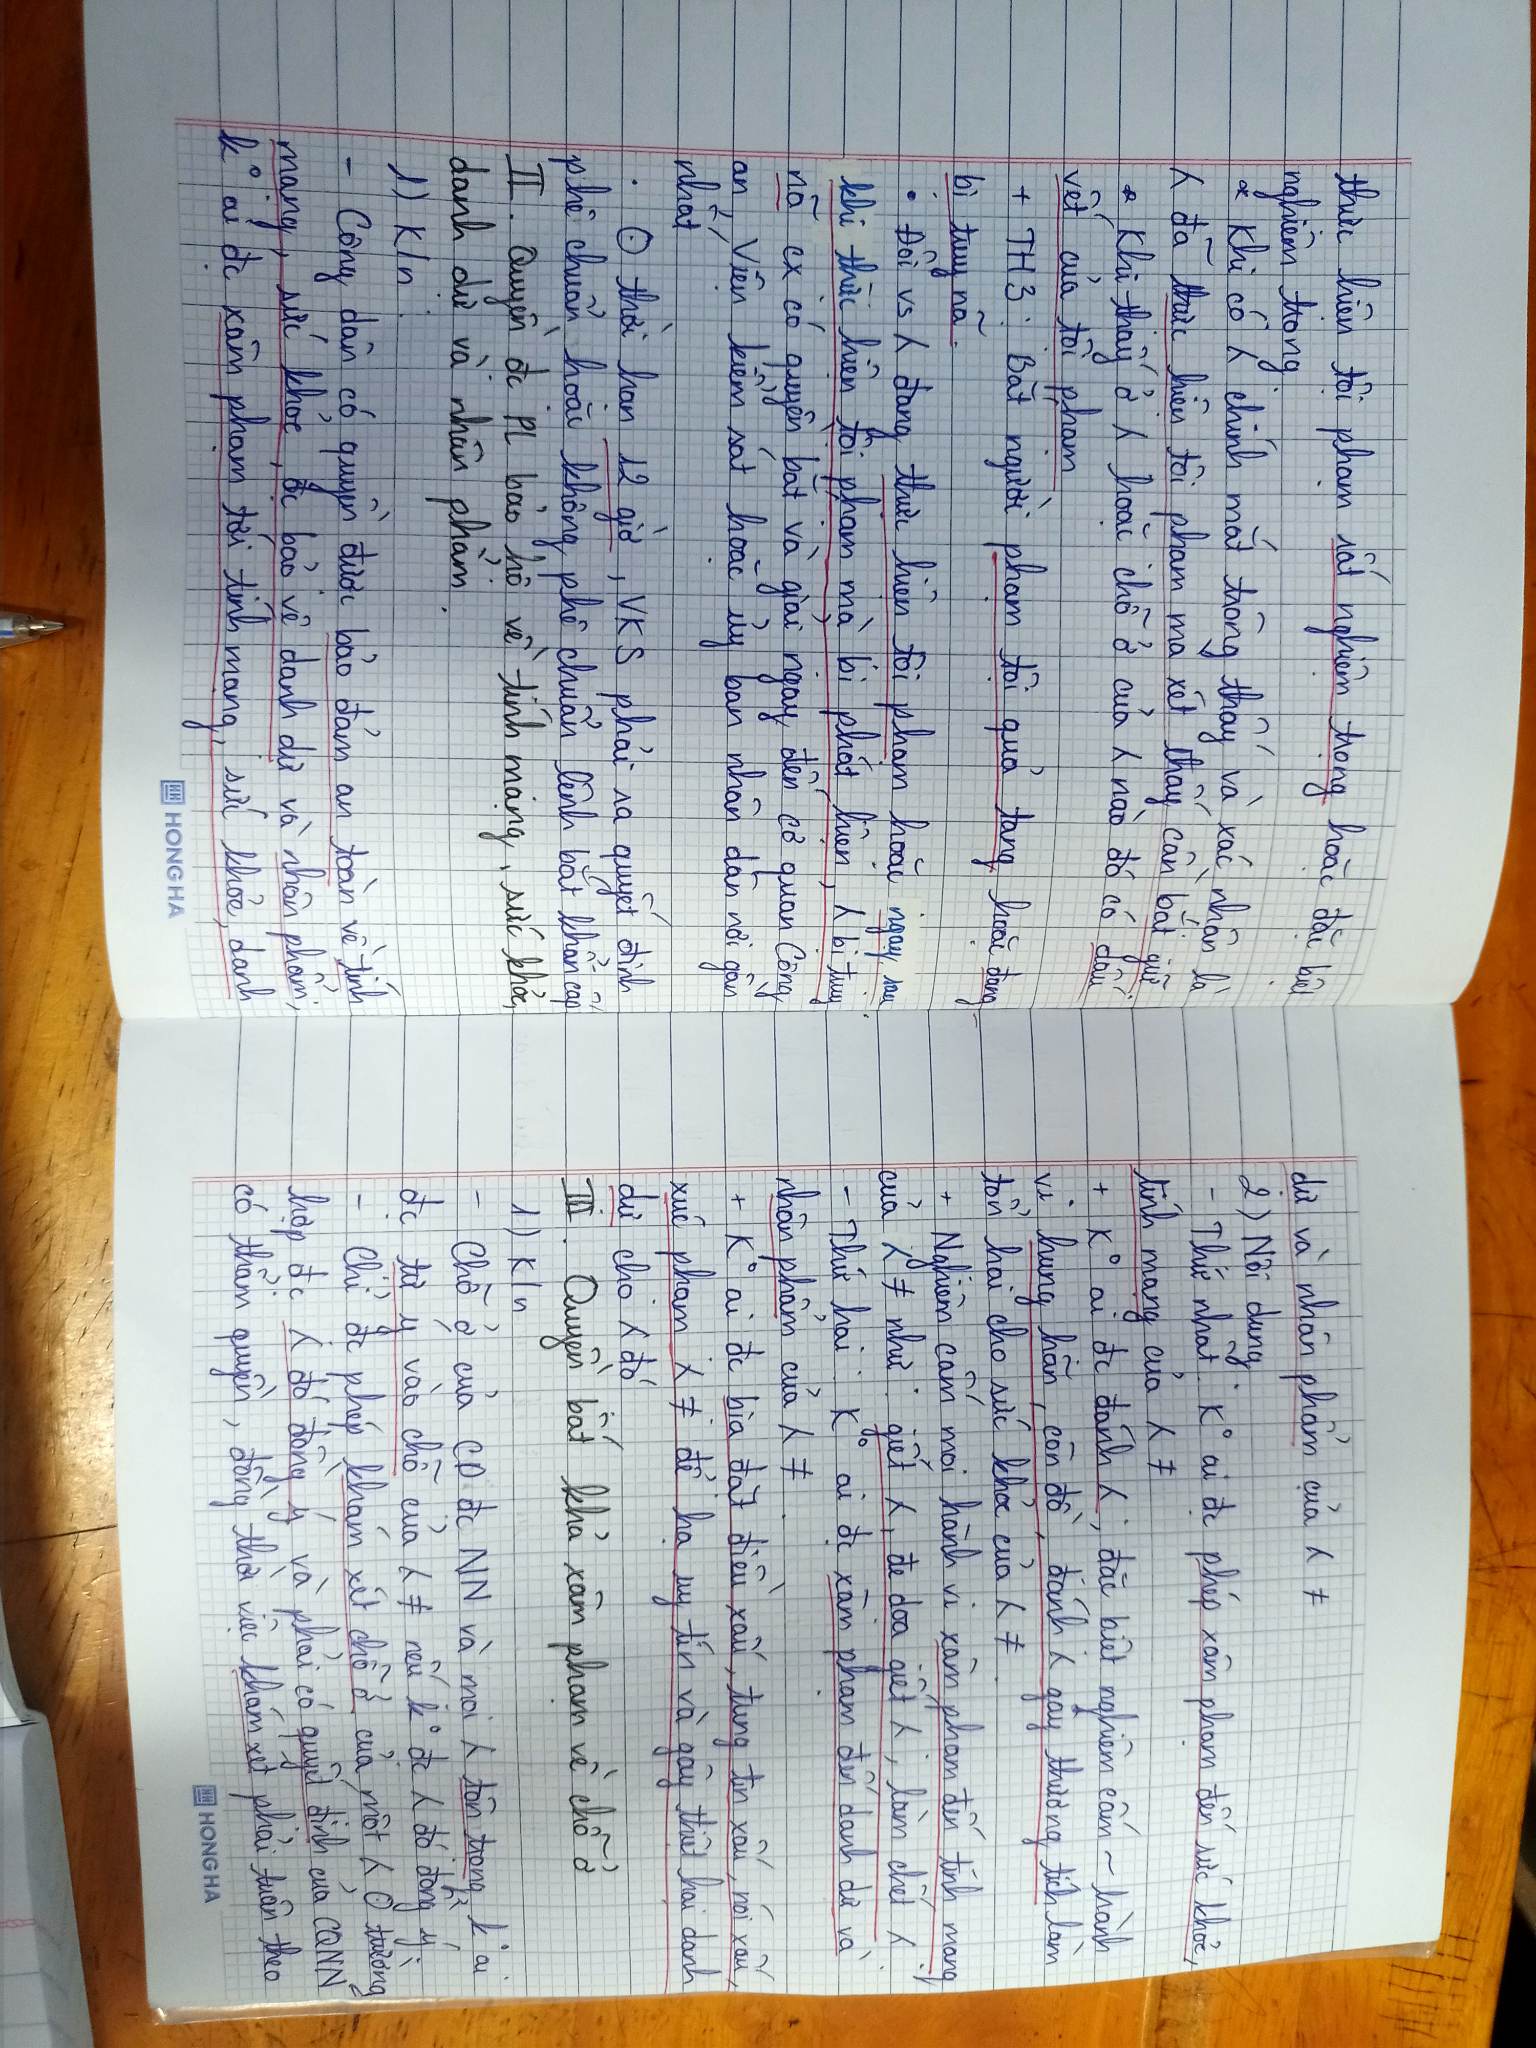 thực hiện tội phạm rất nghiệm trọng hoặc đặc biệt
nghiêm trọng.
* Khi có λ chính mắt trông thấy và xác nhận là
λ đã thực hiện tội phạm mà xét thấy cần bắt giữ
* Khi thấy ở λ hoặc chỗ ở của λ nào đó có dấu
vết của tội phạm
+ TH3: Bắt người phạm tội quả tang hoặc đang
bị truy nã.
• Đối vs λ đang thực hiện tội phạm hoặc ngay sau
khi thực hiện tội phạm mà bị phát hiện, λ bị truy
nã cx có quyền bắt và giải ngay đến cơ quan Công
an, Viện kiểm sát hoặc ủy ban nhân dân nơi gần
nhất
• ⊙ thời hạn 12 giờ, VKS phải ra quyết định
phê chuẩn hoặc không phê chuẩn lệnh bắt khẩn cấp
II. Quyền đc PL bảo hộ về tính mạng, sức khỏe,
danh dự và nhân phẩm.
1) K/n:
- Công dân có quyền được bảo đảm an toàn về tính
mạng, sức khỏe, đc bảo vệ danh dự và nhân phẩm;
k° ai đc xâm phạm tới tính mạng, sức khỏe, danh
HONG HA
dự và nhân phẩm của λ ≠
2) Nội dung
- Thứ nhất: K° ai đc phép xâm phạm đến sức khỏe,
tính mạng của λ ≠
+ K° ai đc đánh λ; đặc biệt nghiêm cấm ~ hành
vi hung hãn, côn đồ, đánh λ gây thương tích làm
tổn hại cho sức khỏe của λ ≠.
+ Nghiêm cấm mọi hành vi xâm phạm đến tính mạng
của λ ≠ như: giết λ, đe dọa giết λ, làm chết λ.
- Thứ hai: K° ai đc xâm phạm đến danh dự và
nhân phẩm của λ ≠.
+ K° ai đc bịa đặt điều xấu, tung tin xấu, nói xấu,
xúc phạm λ ≠ để hạ uy tín và gây thiệt hại danh
dự cho λ đó
III. Quyền bất khả xâm phạm về chỗ ở
1) K/n
- Chỗ ở của CD đc NN và mọi λ tôn trọng, k° ai
đc tự ý vào chỗ của λ ≠ nếu k° đc λ đó đồng ý.
- Chỉ đc phép khám xét chỗ ở của một λ ⊙ trường
hợp đc λ đó đồng ý và phải có quyết định của CQNN
có thẩm quyền, đồng thời việc khám xét phải tuân theo
HONG HA